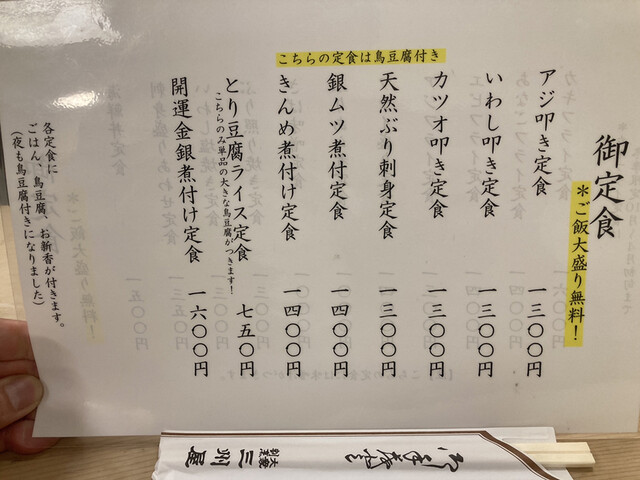 御定食
＊ご飯大盛り無料！
こちらの定食は鳥豆腐付き
アジ叩き定食 一三〇〇円
いわし叩き定食 一三〇〇円
カツオ叩き定食 一三〇〇円
天然ぶり刺身定食 一三〇〇円
銀ムツ煮付定食 一四〇〇円
きんめ煮付け定食 一四〇〇円
とり豆腐ライス定食 七五〇円
こちらのみ単品の大きな鳥豆腐がつきます！
開運金銀煮付け定食 一六〇〇円
各定食に
ごはん、鳥豆腐、お新香が付きます。
（夜も鳥豆腐付きになりました）
三州屋